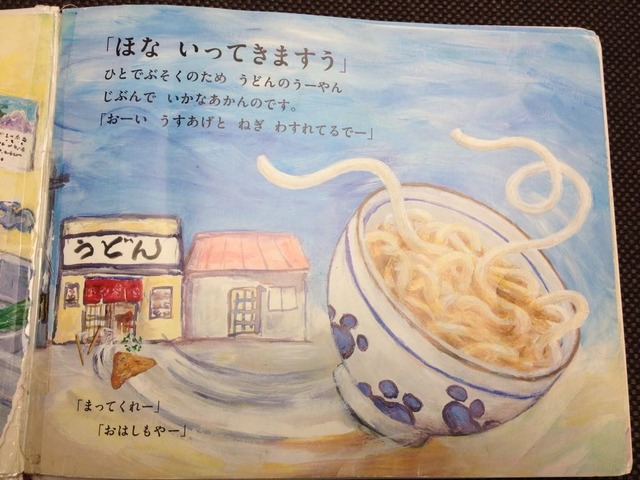 「ほな いってきますう」
ひとでぶそくのため うどんのうーやん
じぶんで いかなあかんのです。
「おーい うすあげと ねぎ わすれてるでー」
うどん
「まってくれー」
「おはしもやー」